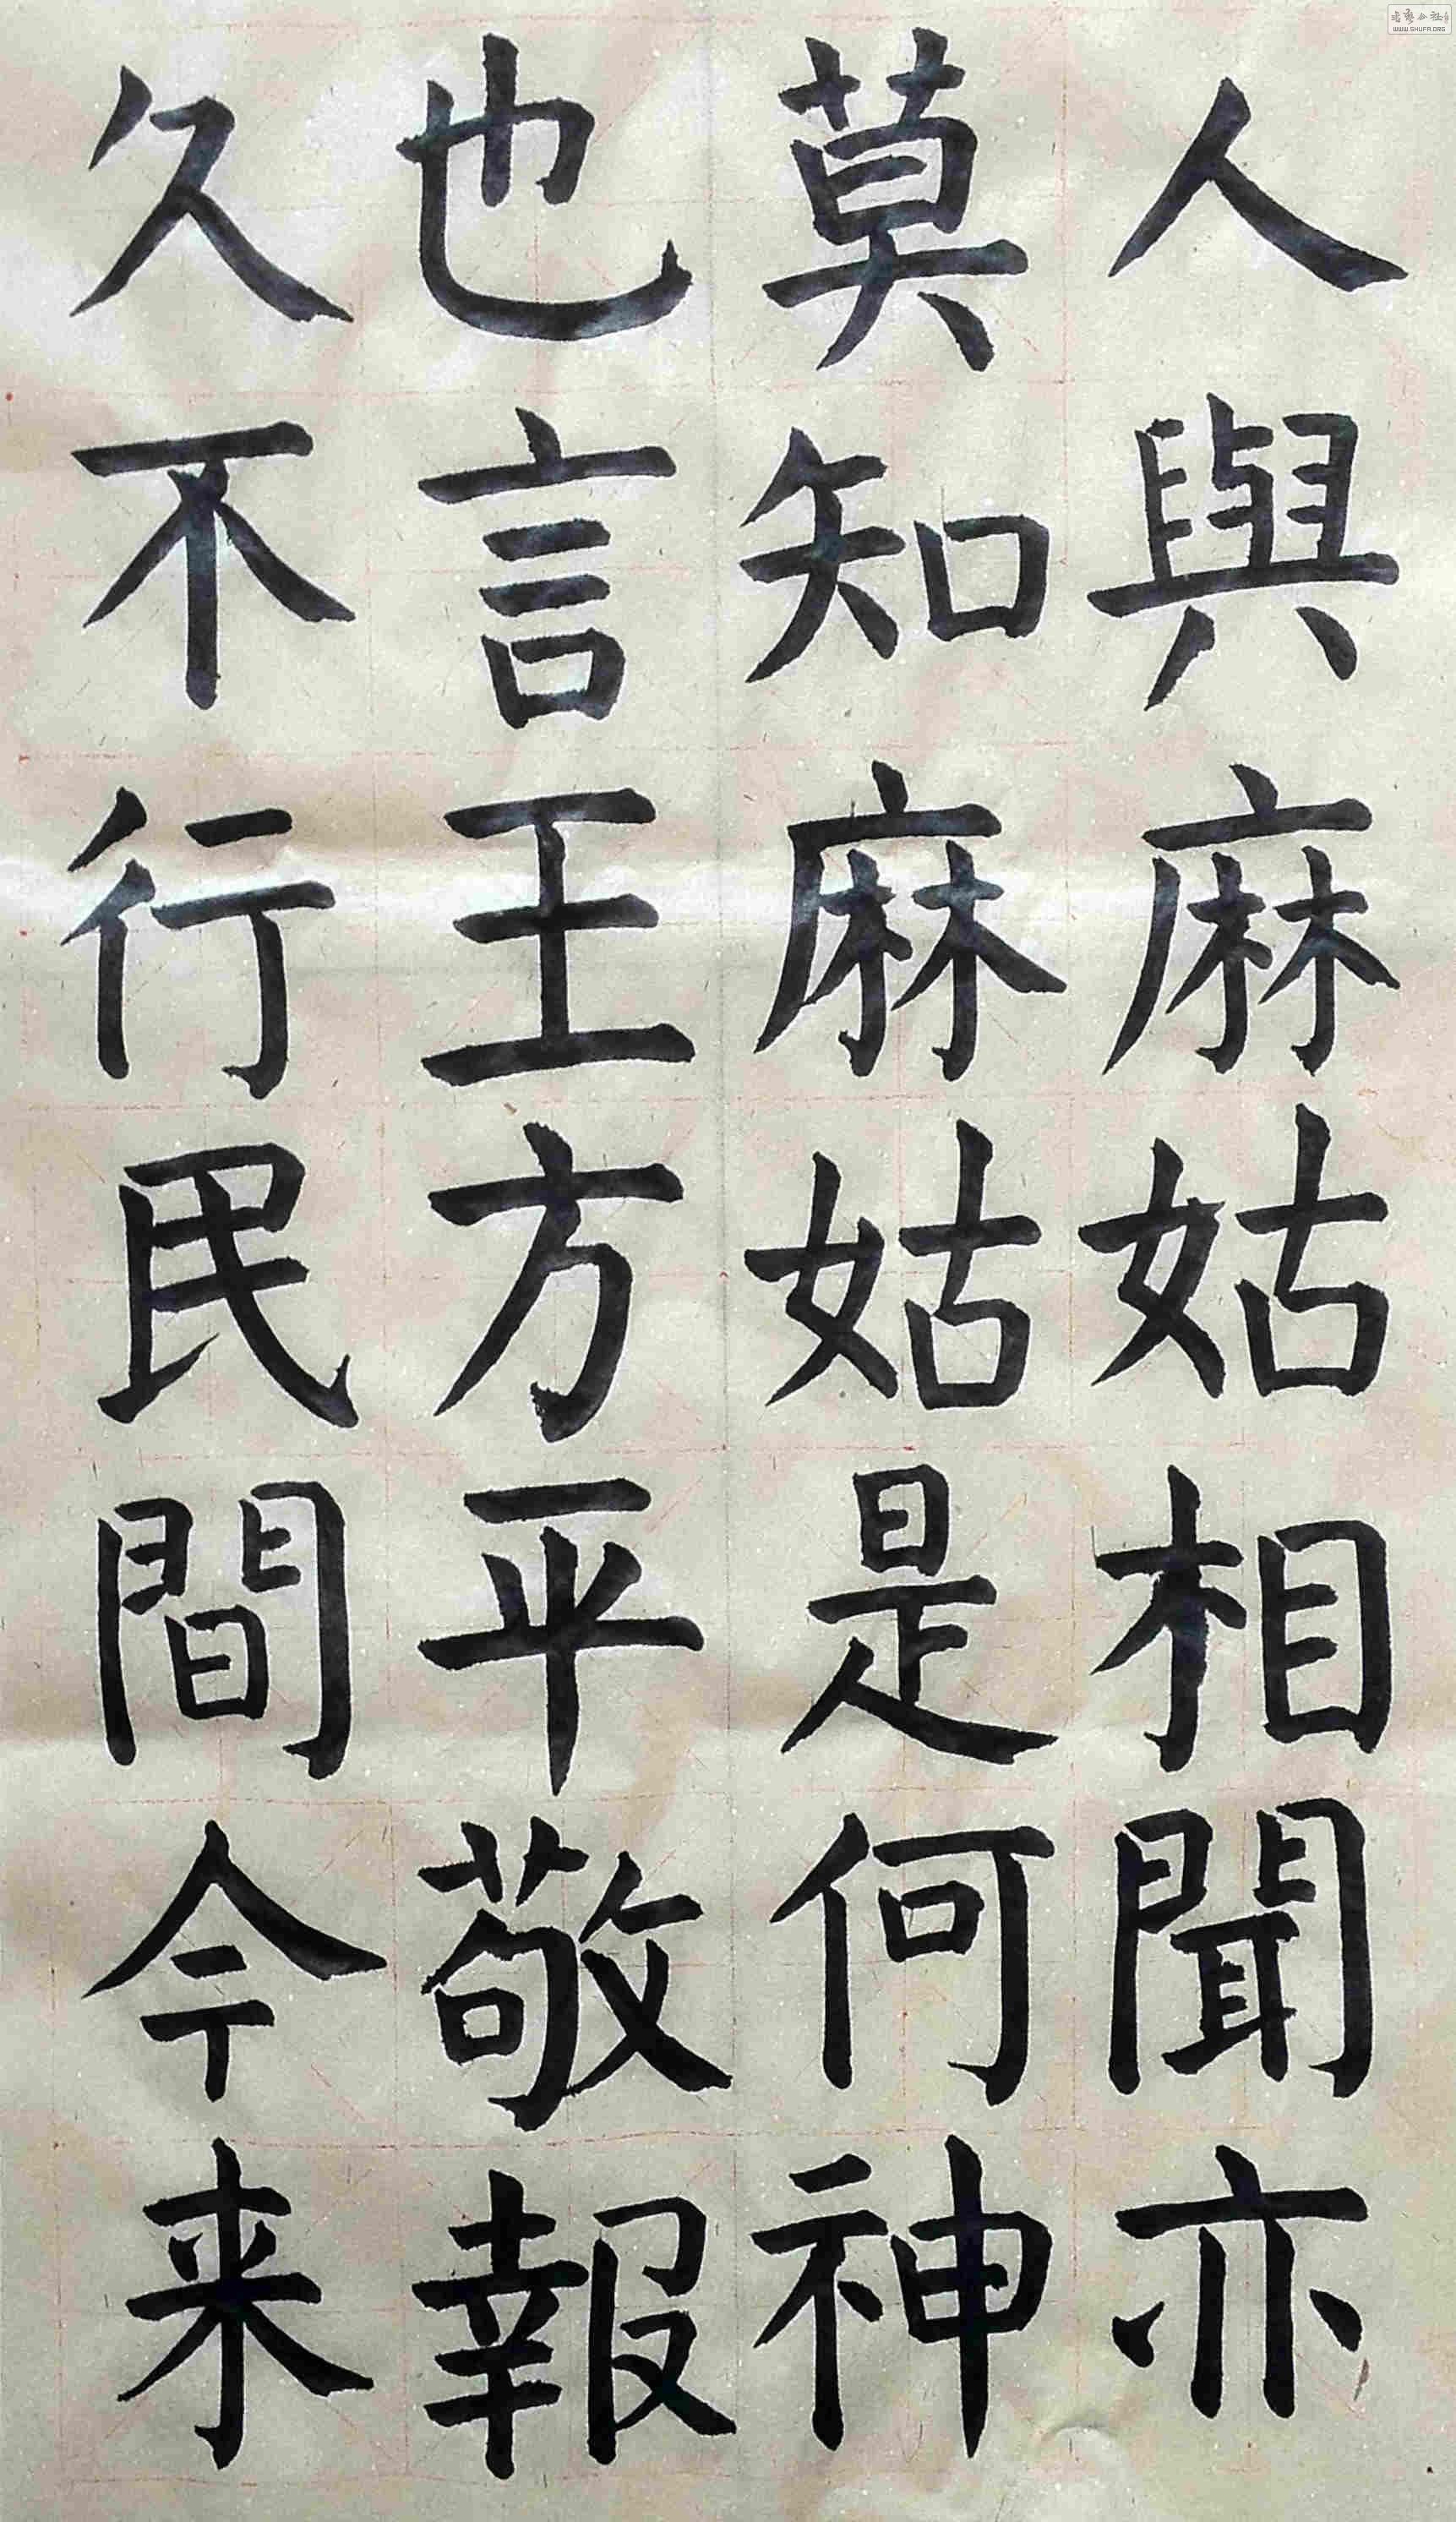 人與麻姑相聞亦
莫知麻姑是何神
也言王方平敬報
久不行民間今来
WWW.SHUFA.ORG